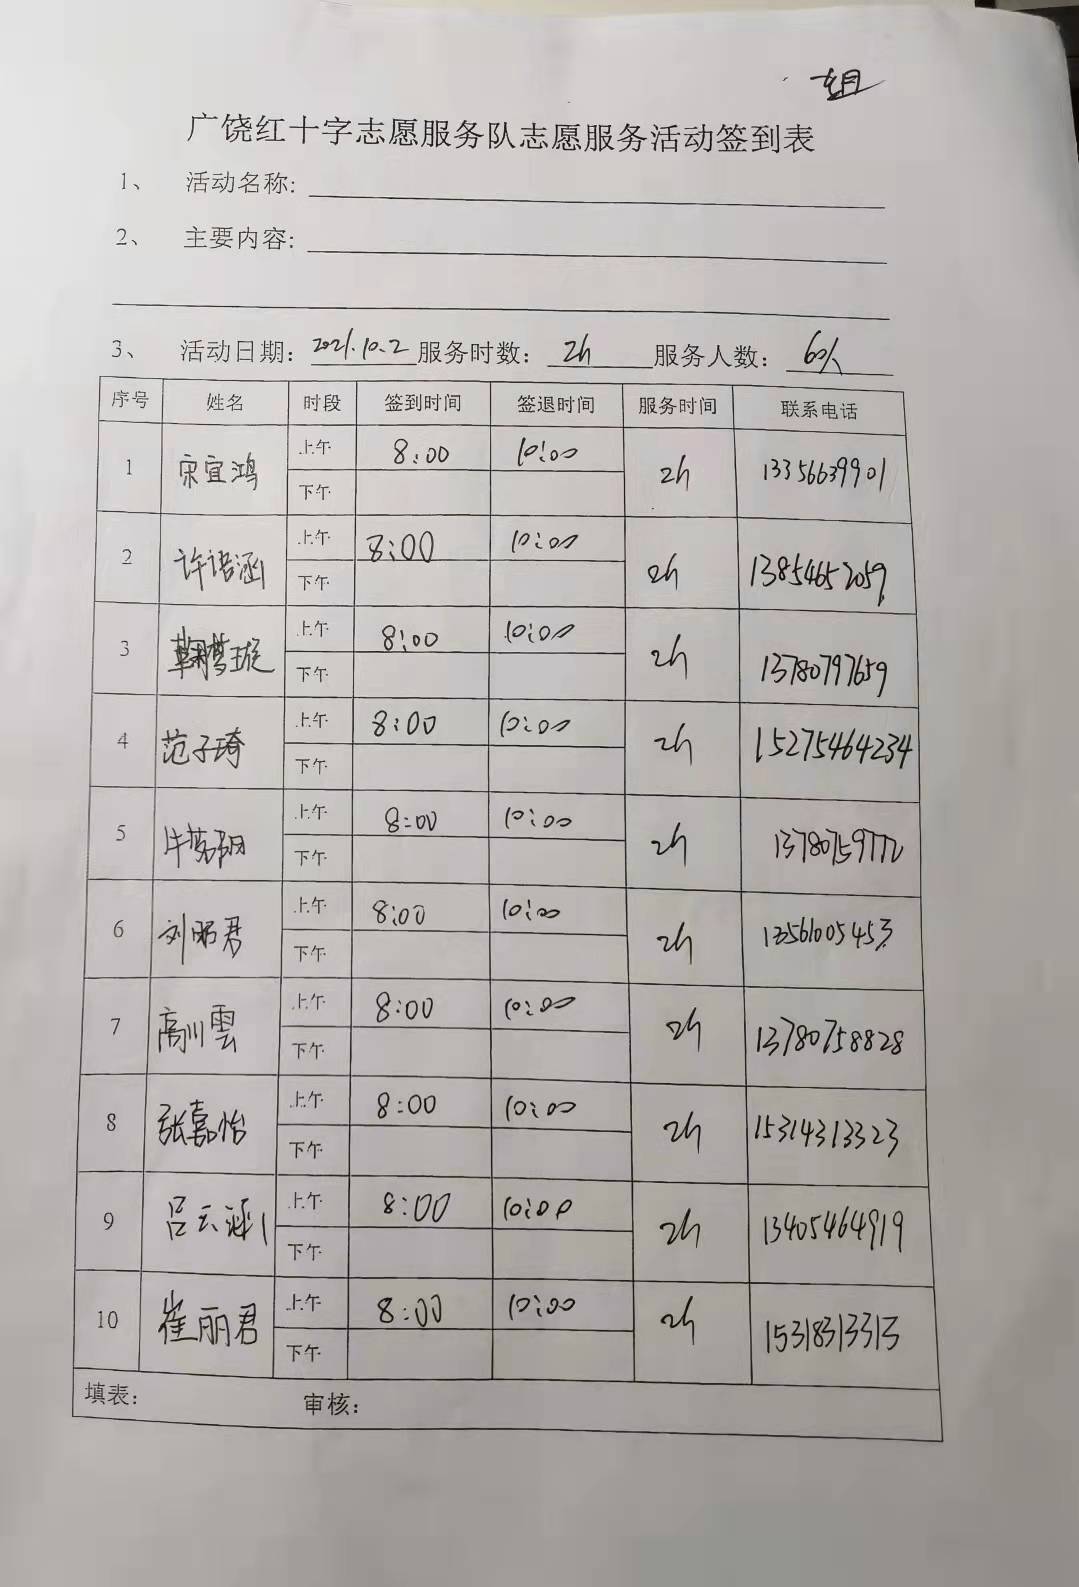 广饶红十字志愿服务队志愿服务活动签到表
1、 活动名称:
2、 主要内容:
3、 活动日期: 2021.10.2 服务时数: 2h 服务人数: 60人
序号 姓名 时段 签到时间 签退时间 服务时间 联系电话
1 宋宜鸿 上午 8:00 10:00 2h 13356639901
下午
2 许语涵 上午 8:00 10:00 2h 13854652059
下午
3 鞠梦璇 上午 8:00 10:00 2h 13780797659
下午
4 范子琦 上午 8:00 10:00 2h 15275464234
下午
5 上午 8:00 10:00 2h 13780759772
下午
6 上午 8:00 10:00 2h 13561005453
下午
7 高川雲 上午 8:00 10:00 2h 13780758828
下午
8 张嘉怡 上午 8:00 10:00 2h 15314313323
下午
9 吕云涵 上午 8:00 10:00 2h 13405464919
下午
10 崔丽君 上午 8:00 10:00 2h 15318313313
下午
填表: 审核: